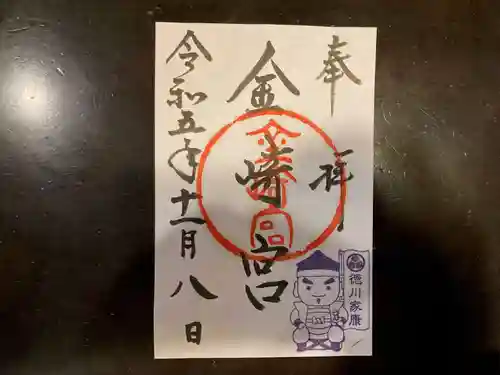 奉拝
金崎宮
令和五年十一月八日
徳川家康